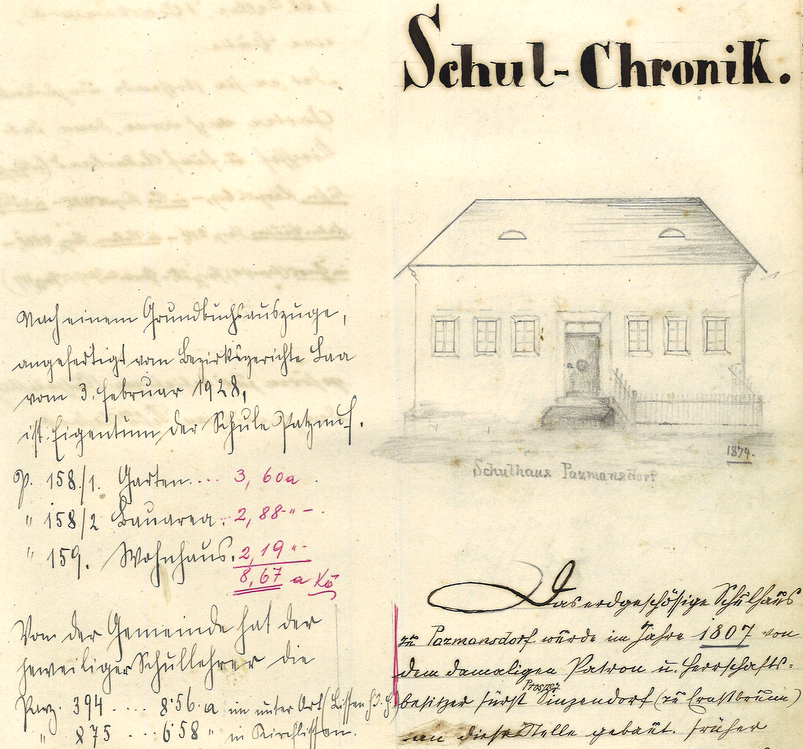 Nach einem Grundbuchsauszuge,
angefertigt vom Bezirksgerichte Laa
vom 3. Februar 1928,
ist Eigentum der Schule Patzmsf.
P. 158/1. Garten.... 3,60a.
" 158/2 Bauarea. 2,88 " -
" 159. Wohnhaus. 2,19 " -
8,67 a
Von der Gemeinde hat der
jeweiliger Schullehrer die
Parz. 394 .... 8·56 a im unter Ort
" 875 ... 6·58 " in
Schul-Chronik.
1874.
Schulhaus Pazmansdorf
Das erdgeschößige Schulhaus
zu Pazmansdorf wurde im Jahre 1807 von
dem damaligen Patron u. Herrschafts-
besitzer Fürst Prosper Sinzendorf (zu Ernstbrunn)
an dieser Stelle gebaut. Früher